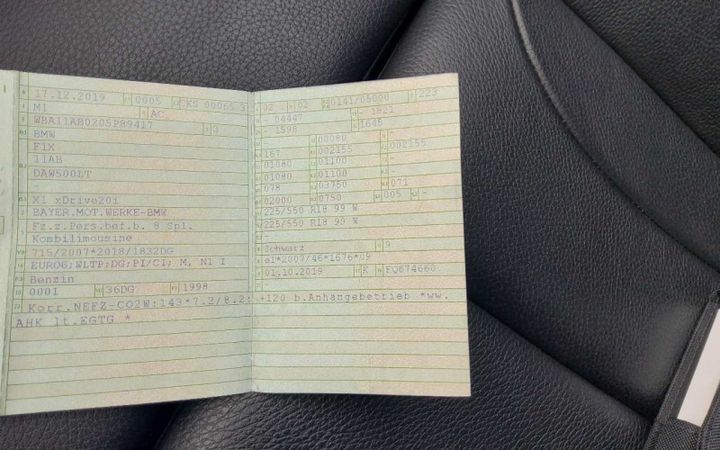 17.12.2019 0005 CKS 00065 3
M1 AC
WBA11AB0205P89417 3
BMW
F1X
11AB
DAW500LT
-
X1 xDrive20i
BAYER.MOT.WERKE-BMW
Fz.z.Pers.bef.b. 8 Spl.
Kombilimousine
715/2007*2018/1832DG
EURO6;WLTP;DG;PI/CI; M, N1 I
Benzin
0001 36DG 1998
Korr.NEFZ-CO2W:143*7.2/8.2: +120 b.Anhängebetrieb *ww.
AHK lt.EGTG *
02 02 0141/05000 223
- 04447 - 1821
- 1598 1645
- 00080 -
167 002155 002155
01080 01100 -
01080 01100 -
078 03750 071
02000 0750 005 -
225/550 R18 99 W
225/550 R18 99 W
-
Schwarz 9
e1*2007/46*1676*09
01.10.2019 K FQ074660